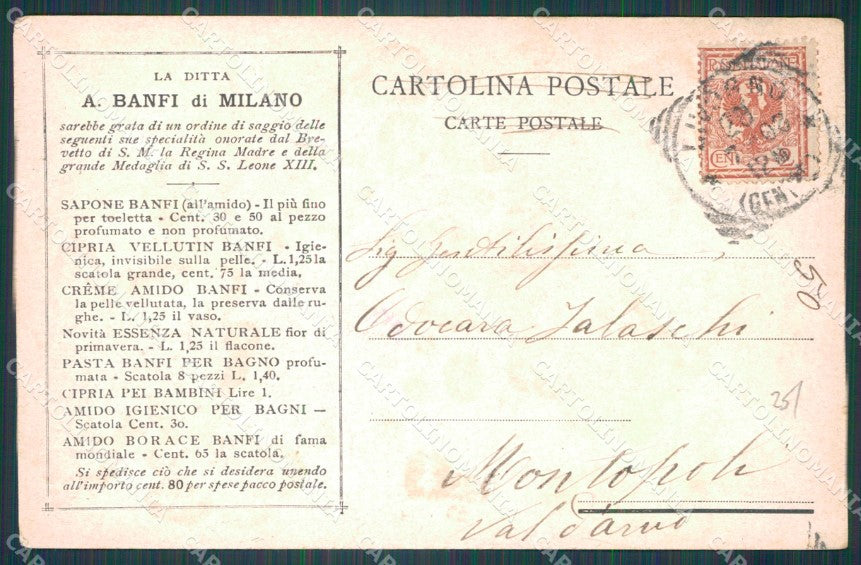 LA DITTA
A. BANFI di MILANO
sarebbe grata di un ordine di saggio delle
seguenti sue specialità onorate dal Bre-
vetto di S. M. la Regina Madre e della
grande Medaglia di S. S. Leone XIII.
SAPONE BANFI (all'amido) - Il più fino
per toeletta - Cent. 30 e 50 al pezzo
profumato e non profumato.
CIPRIA VELLUTIN BANFI - Igie-
nica, invisibile sulla pelle. - L. 1,25 la
scatola grande, cent. 75 la media,
CRÊME AMIDO BANFI - Conserva
la pelle vellutata, la preserva dalle ru-
ghe. - L. 1,25 il vaso.
Novità ESSENZA NATURALE fior di
primavera. - L. 1,25 il flacone.
PASTA BANFI PER BAGNO profu-
mata - Scatola 8 pezzi L. 1,40.
CIPRIA PEI BAMBINI Lire 1.
AMIDO IGIENICO PER BAGNI —
Scatola Cent. 30.
AMIDO BORACE BANFI di fama
mondiale - Cent. 65 la scatola.
Si spedisce ciò che si desidera unendo
all'importo cent. 80 per spese pacco postale.
CARTOLINA POSTALE
CARTE POSTALE
(GEN
Sig Gentilissima
Odocara Talaschi
Montopoli
Val d'arno
50
25/
CARTOLINOMANIA